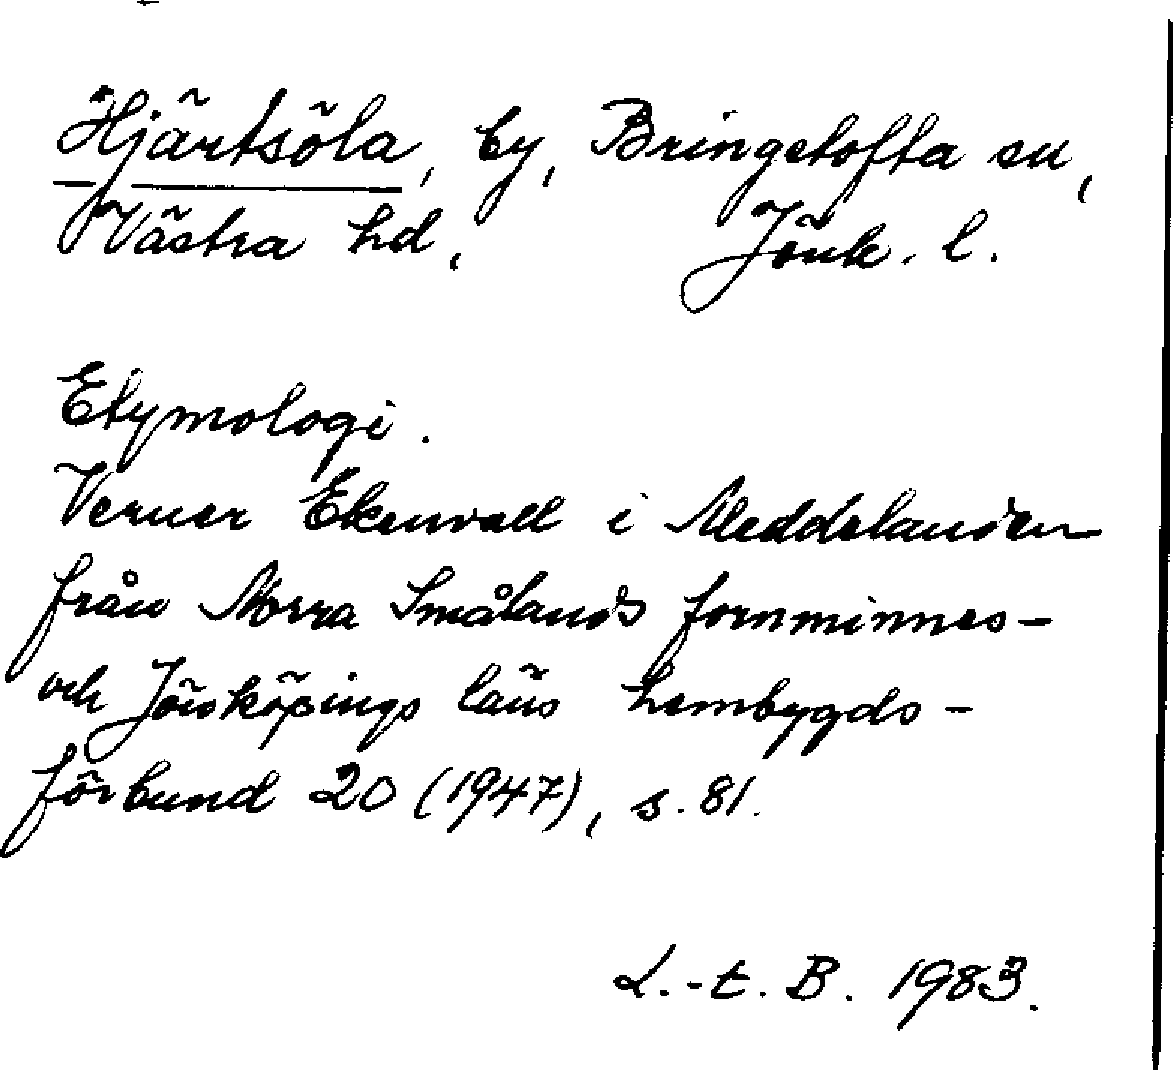 Hjärtsöla, by, Bringetofta sn,
Västra hd, Jönk. l.
Etymologi.
Verner Ekenvall i Meddelanden
från Norra Smålands fornminnes-
och Jönköpings läns hembygds-
förbund 20 (1947), s. 81.
L.-t. B. 1983.